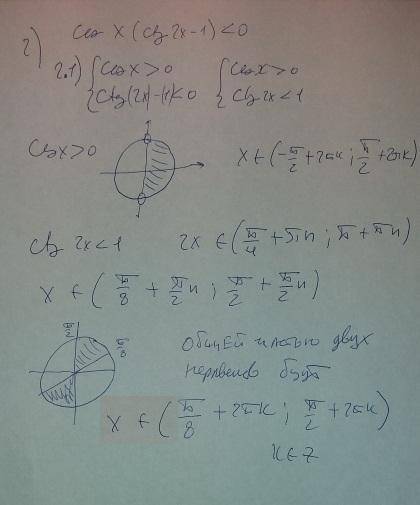 2) Cos x (ctg 2x-1) < 0
2.1) { Cos x > 0 { Cos x > 0
{ Ctg(2x) - 1 < 0 { Ctg 2x < 1
Cos x > 0 x ∈ (-π/2 + 2πk ; π/2 + 2πk)
ctg 2x < 1 2x ∈ (π/4 + πn ; π + πn)
x ∈ (π/8 + π/2 n ; π/2 + π/2 n)
π/2 π/8
Общей частью двух
неравенств будет
x ∈ (π/8 + 2πk ; π/2 + 2πk)
k ∈ Z